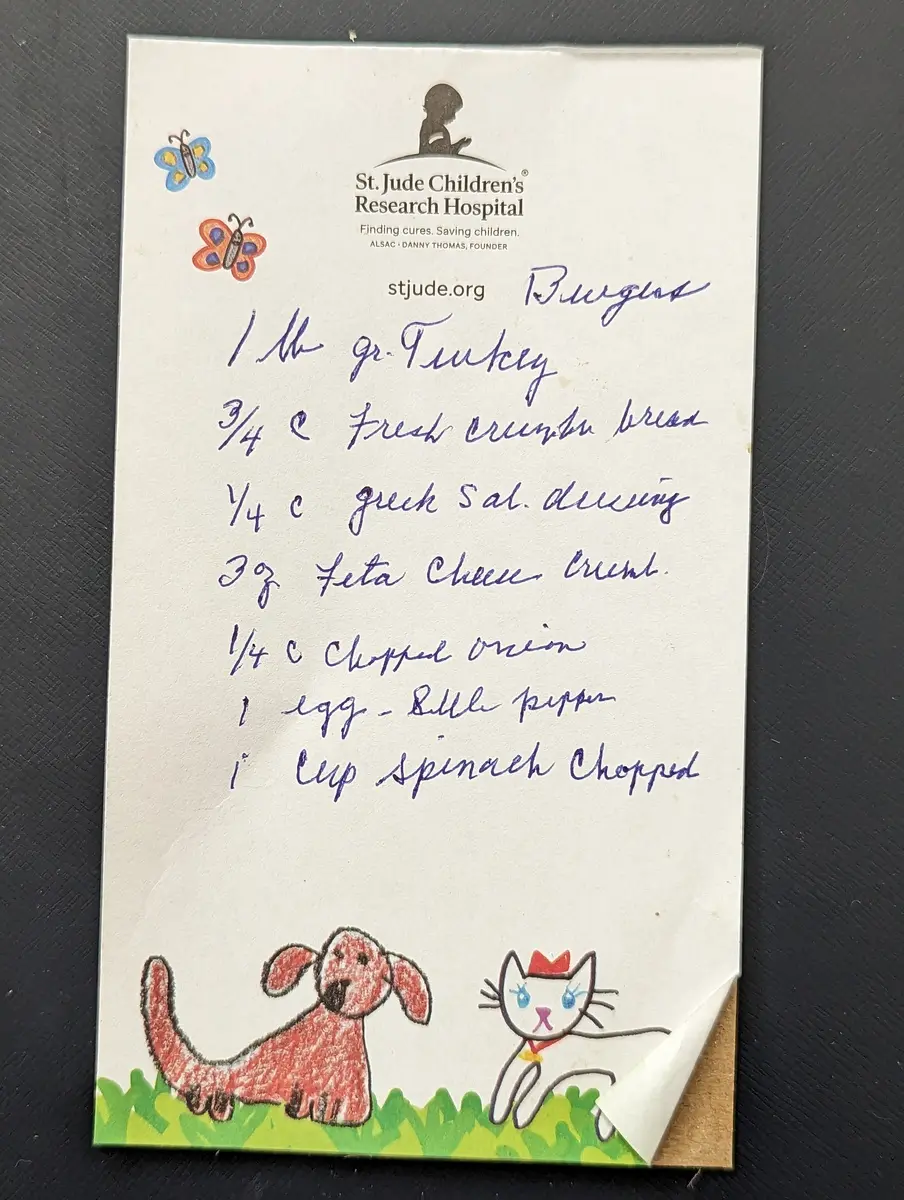 St. Jude Children's®
Research Hospital
Finding cures. Saving children.
ALSAC · DANNY THOMAS, FOUNDER
stjude.org
Burgers
1 lb gr. Turkey
3/4 C Fresh crumbs bread
1/4 c greek Sal. dressing
3 oz Feta Cheese Crumb.
1/4 c Chopped onion
1 egg - pepper
1 Cup Spinach Chopped